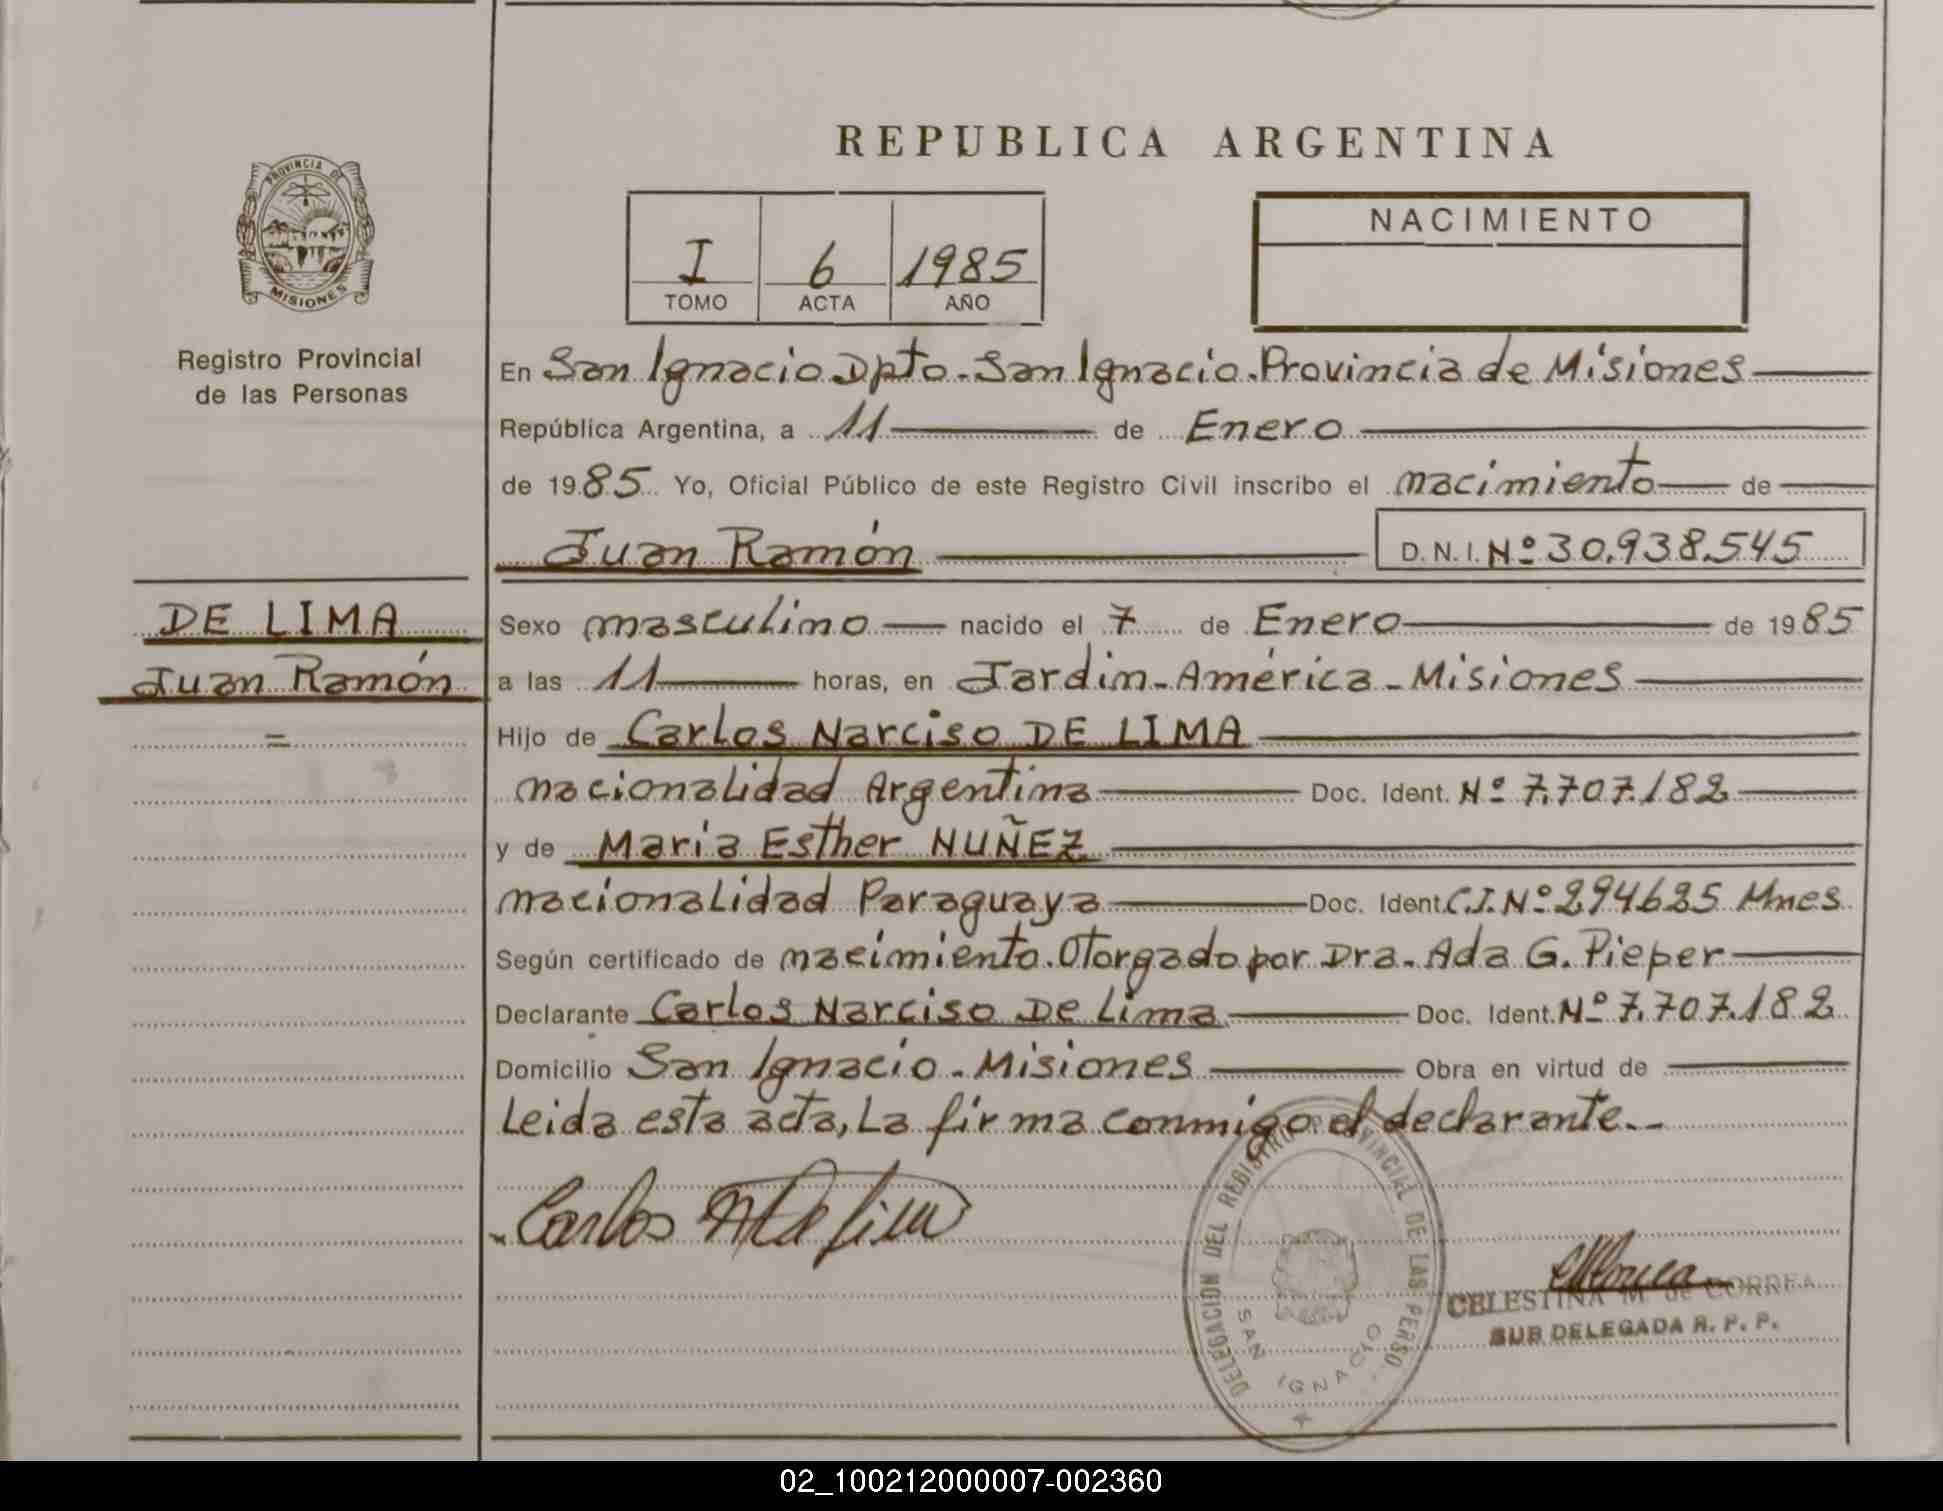 REPUBLICA ARGENTINA
PROVINCIA DE
MISIONES
Registro Provincial
de las Personas
I 6 1985
TOMO ACTA AÑO
NACIMIENTO
En San Ignacio Dpto. San Ignacio. Provincia de Misiones
República Argentina, a 11 de Enero
de 1985 Yo, Oficial Público de este Registro Civil inscribo el nacimiento de
Juan Ramón D.N.I. Nº 30.938.545
DE LIMA
Juan Ramón
=
Sexo masculino nacido el 7 de Enero de 1985
a las 11 horas, en Jardin-América-Misiones
Hijo de Carlos Narciso DE LIMA
nacionalidad Argentina Doc. Ident. Nº 7.707.182
y de Maria Esther NUÑEZ
nacionalidad Paraguaya Doc. Ident. C.I. Nº 294625 Mnes
Según certificado de nacimiento. Otorgado por Dra. Ada G. Pieper
Declarante Carlos Narciso De Lima Doc. Ident. Nº 7.707.182
Domicilio San Ignacio - Misiones Obra en virtud de
Leida esta acta, La firma conmigo el declarante.-
Carlos N De Lima
DELEGACION DEL REGISTRO PROVINCIAL DE LAS PERSO.
SAN IGNACIO
CELESTINA M de CORREA
SUB DELEGADA R. P. P.
02_100212000007-002360